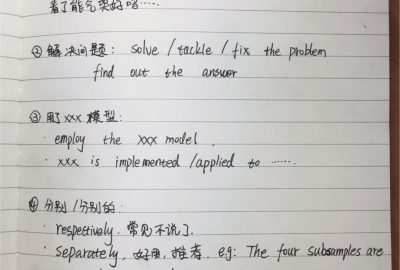 看了能气哭好吗……
② 解决问题: solve / tackle / fix the problem
find out the answer
③ 用了xxx模型:
· employ the xxx model.
· xxx is implemented /applied to ……
④ 分别/分别的:
· respectively, 常见不说了.
· separately, 好用, 推荐. e.g: The four subsamples are